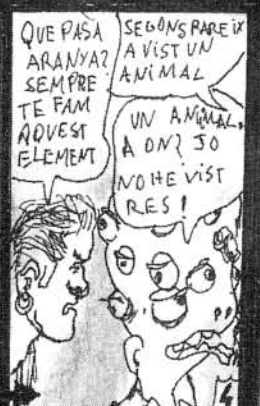 QUE PASA
ARANYA?
SEMPRE
TE FAM
AQUEST
ELEMENT
SEGONS PAREIX
A VIST UN
ANIMAL
UN ANIMAL,
A ON? JO
NO HE VIST
RES!